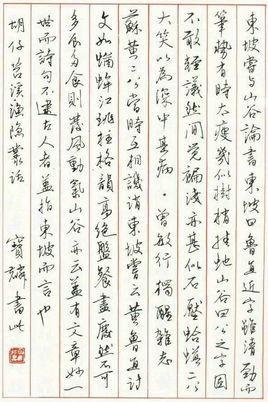 東坡嘗與山谷論書東坡曰魯直近字雖清勁而
筆勢有時太瘦幾似樹梢掛蛇山谷曰公之字固
不敢輕議然間覺褊淺亦甚似石壓蛤蟆二公
大笑以為深中其病·曾敏行獨醒雜志
蘇黃二公當時互相譏誚東坡嘗云黃魯直詩
文如蝤蛑江珧柱格韻高絕盤餐盡廢然不可
多食多食則發風動氣山谷亦云蓋有文章妙一
世而詩句不逮古人者蓋指東坡而言也
胡仔苕溪漁隱叢話
寶麟書此